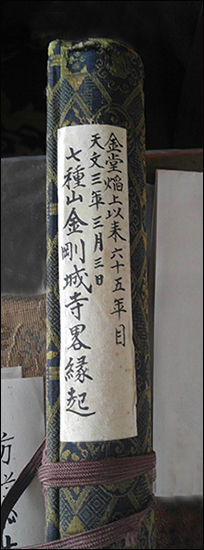 金堂焔上以来六十五年目
天文三年三月三日
七種山金剛城寺畧縁起